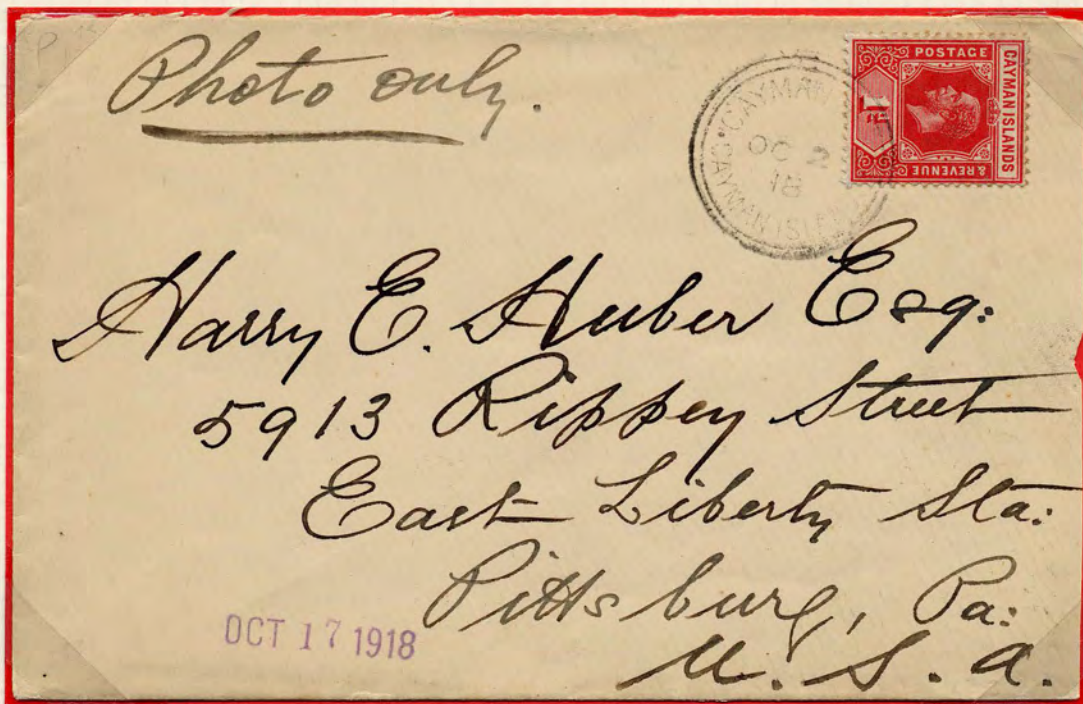 Photo only.
POSTAGE
CAYMAN ISLANDS
& REVENUE
1D
CAYMAN
OC 2
18
CAYMAN ISLANDS
Harry E. Huber Esq:
5913 Rippey Street
East Liberty Sta:
Pittsburg, Pa:
U. S. A.
OCT 17 1918